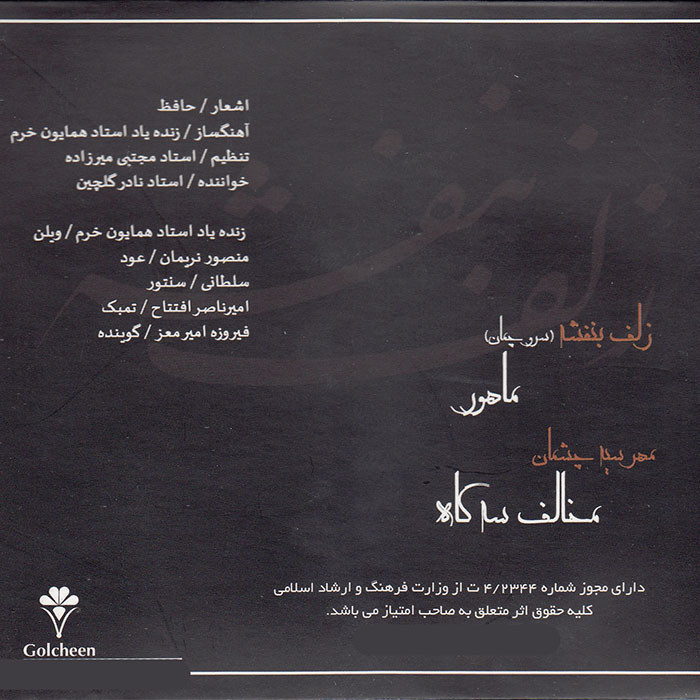 اشعار / حافظ
آهنگساز / زنده یاد استاد همایون خرم
تنظیم / استاد مجتبی میرزاده
خواننده / استاد نادر گلچین
زنده یاد استاد همایون خرم / ویلن
منصور نریمان / عود
سلطانی / سنتور
امیرناصر افتتاح / تمبک
فیروزه امیرمعز / گوینده
زلف بنفشه
زلف بنفشه (سرو چمان)
ماهور
مهر سیه چشمان
مخالف سه گاه
دارای مجوز شماره ۴/۲۳۴۴ ت از وزارت فرهنگ و ارشاد اسلامی
کلیه حقوق اثر متعلق به صاحب امتیاز می باشد.
Golcheen